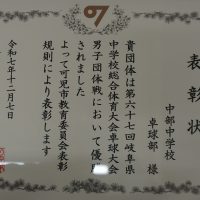 表彰状
中部中学校
卓球部 様
貴団体は第六十七回岐阜県
中学校総合体育大会卓球大会
男子団体戦において優勝
されました
よって可児市教育委員会表彰
規則により表彰します
令和七年十二月七日